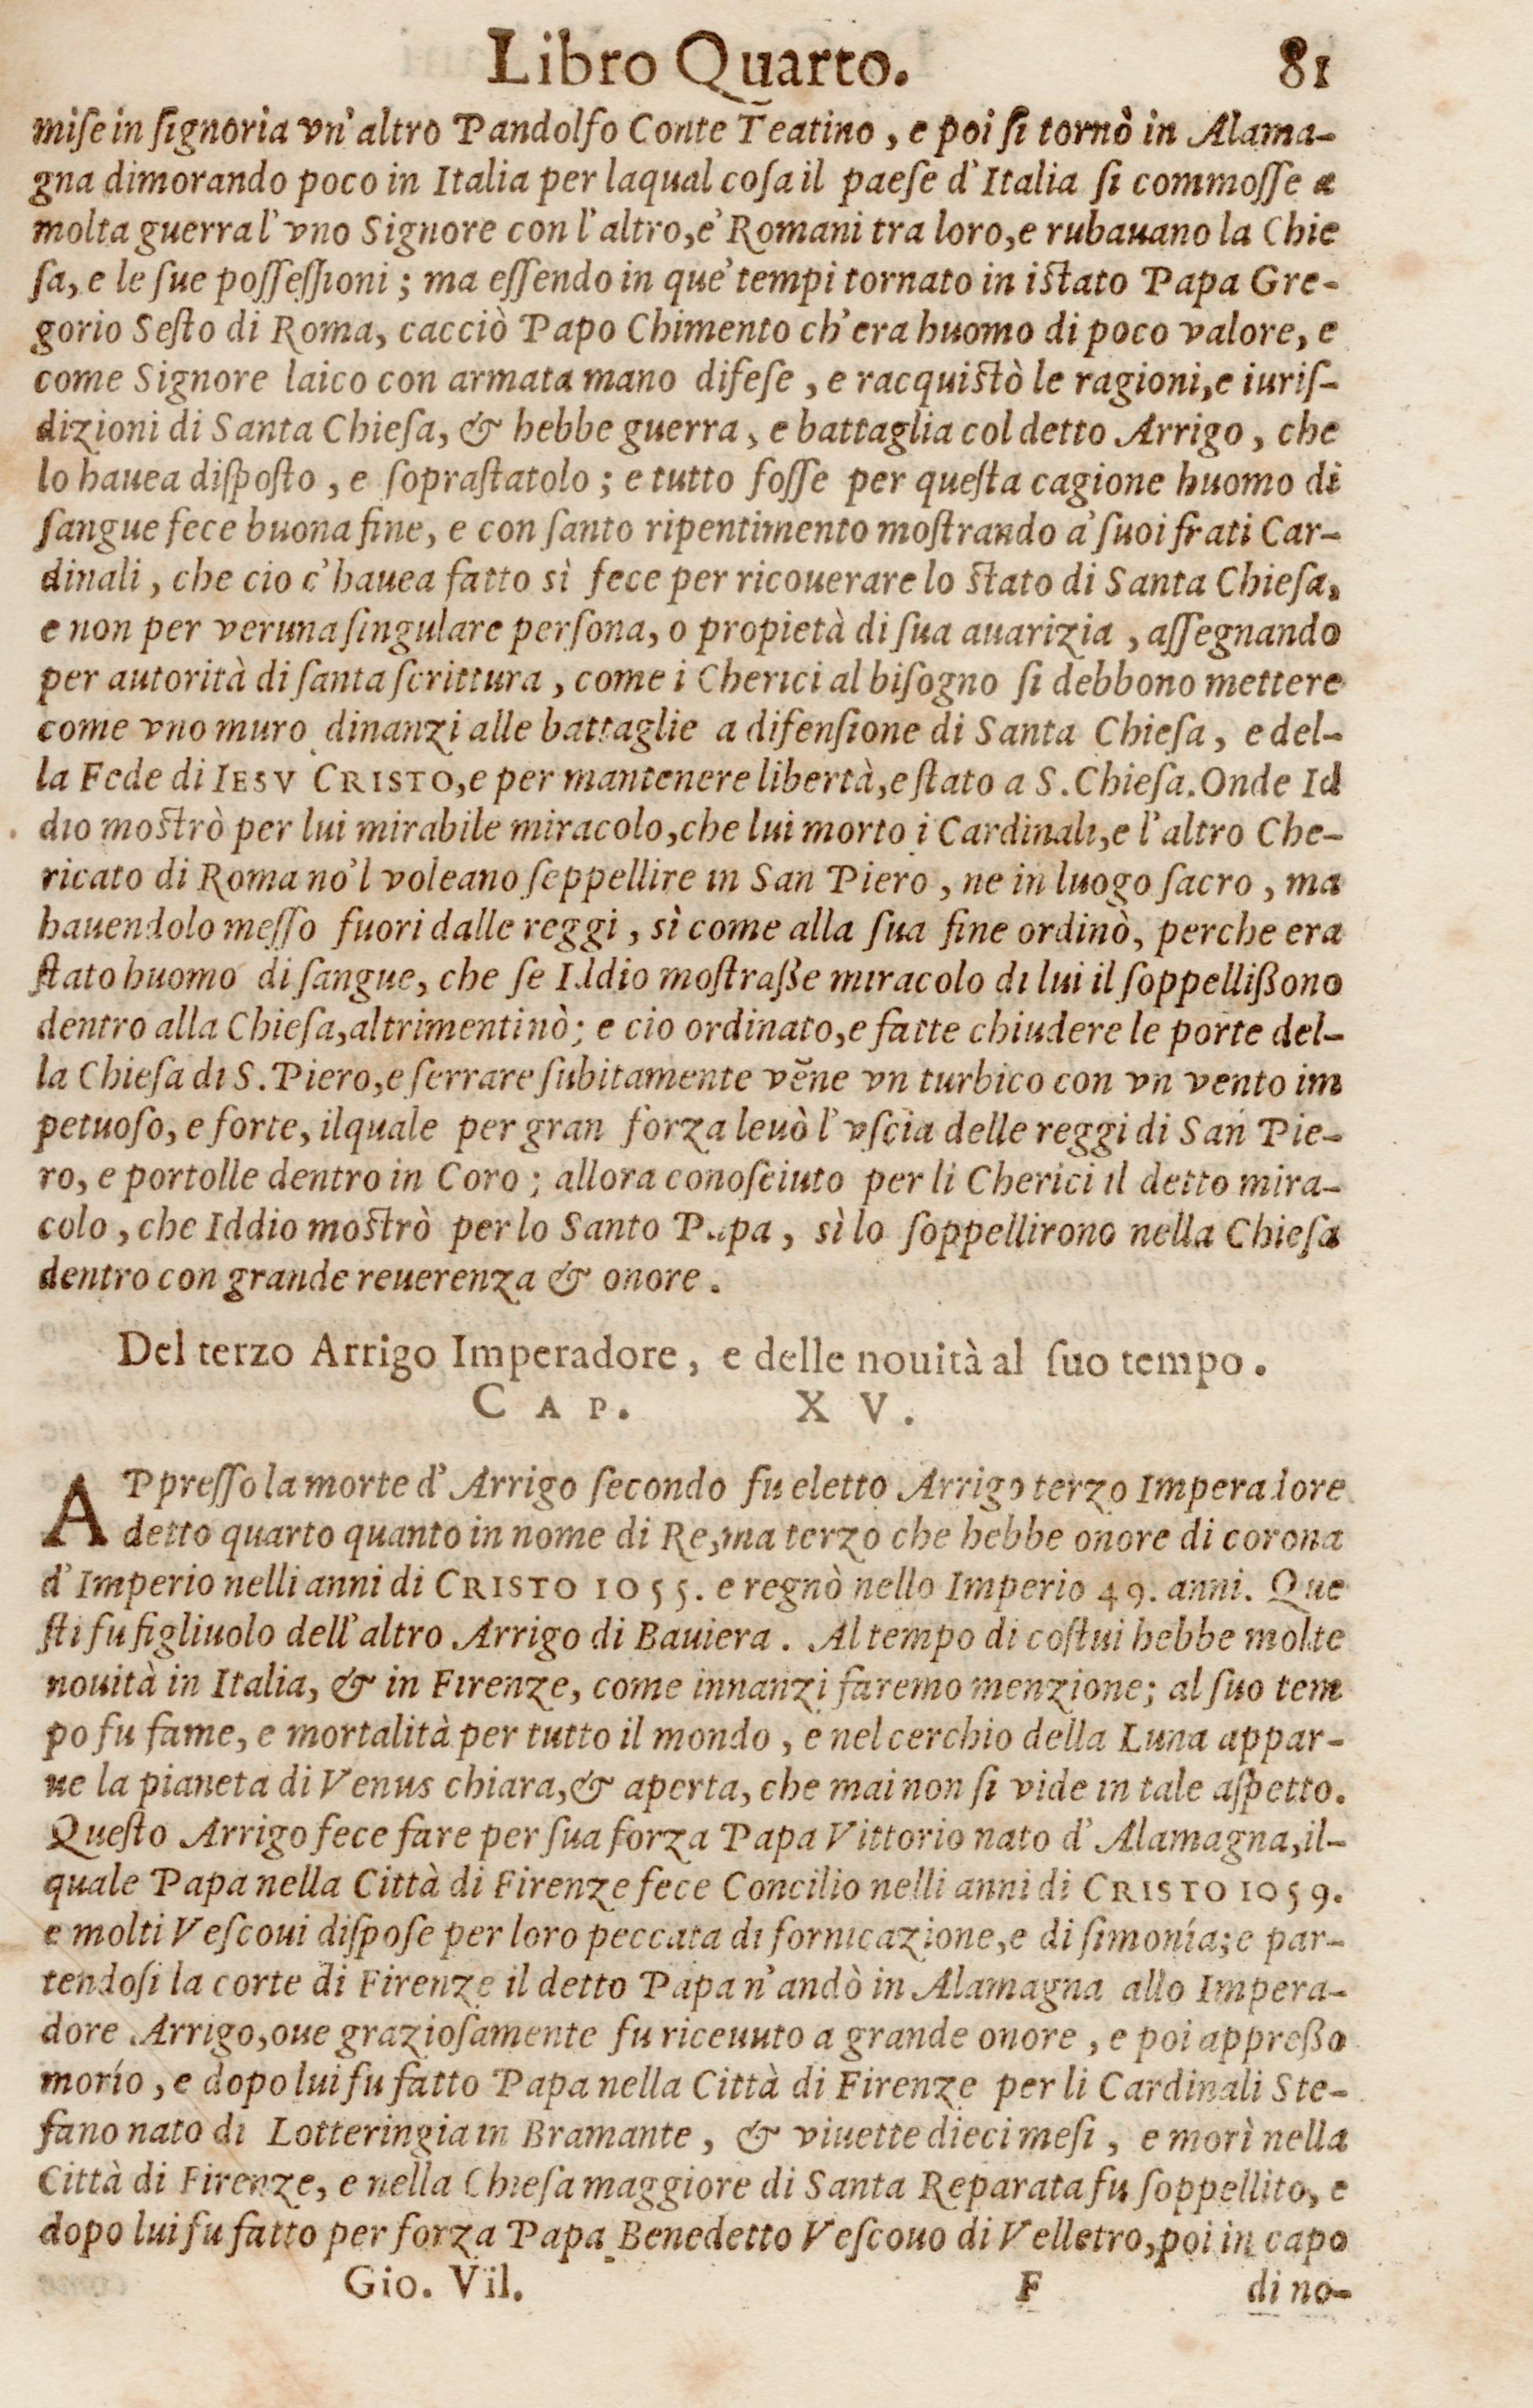 Libro Quarto. 81
miſe in ſignoria vn'altro Pandolfo Conte Teatino, e poi ſi tornò in Alama-
gna dimorando poco in Italia per laqual coſa il paeſe d'Italia ſi commoſſe a
molta guerra l'vno Signore con l'altro, e' Romani tra loro, e rubauano la Chie
ſa, e le ſue poſſeſſioni; ma eſſendo in que' tempi tornato in iſtato Papa Gre-
gorio Seſto di Roma, cacciò Papo Chimento ch'era huomo di poco valore, e
come Signore laico con armata mano difeſe, e racquiſtò le ragioni, e iuriſ-
dizioni di Santa Chieſa, & hebbe guerra, e battaglia col detto Arrigo, che
lo hauea diſpoſto, e ſopraſtatolo; e tutto foſſe per queſta cagione huomo di
ſangue fece buona fine, e con ſanto ripentimento moſtrando a' ſuoi frati Car-
dinali, che cio c'hauea fatto sì fece per ricouerare lo ſtato di Santa Chieſa,
e non per veruna ſingulare perſona, o propietà di ſua auarizia, aſſegnando
per autorità di ſanta ſcrittura, come i Cherici al biſogno ſi debbono mettere
come vno muro dinanzi alle battaglie a difenſione di Santa Chieſa, e del-
la Fede di IESV CRISTO, e per mantenere libertà, e ſtato a S. Chieſa. Onde Id
dio moſtrò per lui mirabile miracolo, che lui morto i Cardinali, e l'altro Che-
ricato di Roma no'l voleano ſeppellire in San Piero, ne in luogo ſacro, ma
hauendolo meſſo fuori dalle reggi, sì come alla ſua fine ordinò, perche era
ſtato huomo di ſangue, che ſe Iddio moſtraße miracolo di lui il ſoppellißono
dentro alla Chieſa, altrimenti nò; e cio ordinato, e fatte chiudere le porte del-
la Chieſa di S. Piero, e ſerrare ſubitamente vẽne vn turbico con vn vento im
petuoſo, e forte, ilquale per gran forza leuò l'vſcia delle reggi di San Pie-
ro, e portolle dentro in Coro; allora conoſciuto per li Cherici il detto mira-
colo, che Iddio moſtrò per lo Santo Papa, sì lo ſoppellirono nella Chieſa
dentro con grande reuerenza & onore.
Del terzo Arrigo Imperadore, e delle nouità al ſuo tempo.
CAP. XV.
APpreſſo la morte d'Arrigo ſecondo fu eletto Arrigo terzo Imperadore
detto quarto quanto in nome di Re, ma terzo che hebbe onore di corona
d'Imperio nelli anni di CRISTO 1055. e regnò nello Imperio 49. anni. Que
ſti fu figliuolo dell'altro Arrigo di Bauiera. Al tempo di coſtui hebbe molte
nouità in Italia, & in Firenze, come innanzi faremo menzione; al ſuo tem
po fu fame, e mortalità per tutto il mondo, e nel cerchio della Luna appar-
ue la pianeta di Venus chiara, & aperta, che mai non ſi vide in tale aſpetto.
Queſto Arrigo fece fare per ſua forza Papa Vittorio nato d'Alamagna, il-
quale Papa nella Città di Firenze fece Concilio nelli anni di CRISTO 1059.
e molti Veſcoui diſpoſe per loro peccata di fornicazione, e di ſimonía; e par-
tendoſi la corte di Firenze il detto Papa n'andò in Alamagna allo Impera-
dore Arrigo, oue grazioſamente fu riceuuto a grande onore, e poi appreßo
morío, e dopo lui fu fatto Papa nella Città di Firenze per li Cardinali Ste-
fano nato di Lotteringia in Bramante, & viuette dieci meſi, e morì nella
Città di Firenze, e nella Chieſa maggiore di Santa Reparata fu ſoppellito, e
dopo lui fu fatto per forza Papa Benedetto Veſcouo di Velletro, poi in capo
Gio. Vil. F di no-